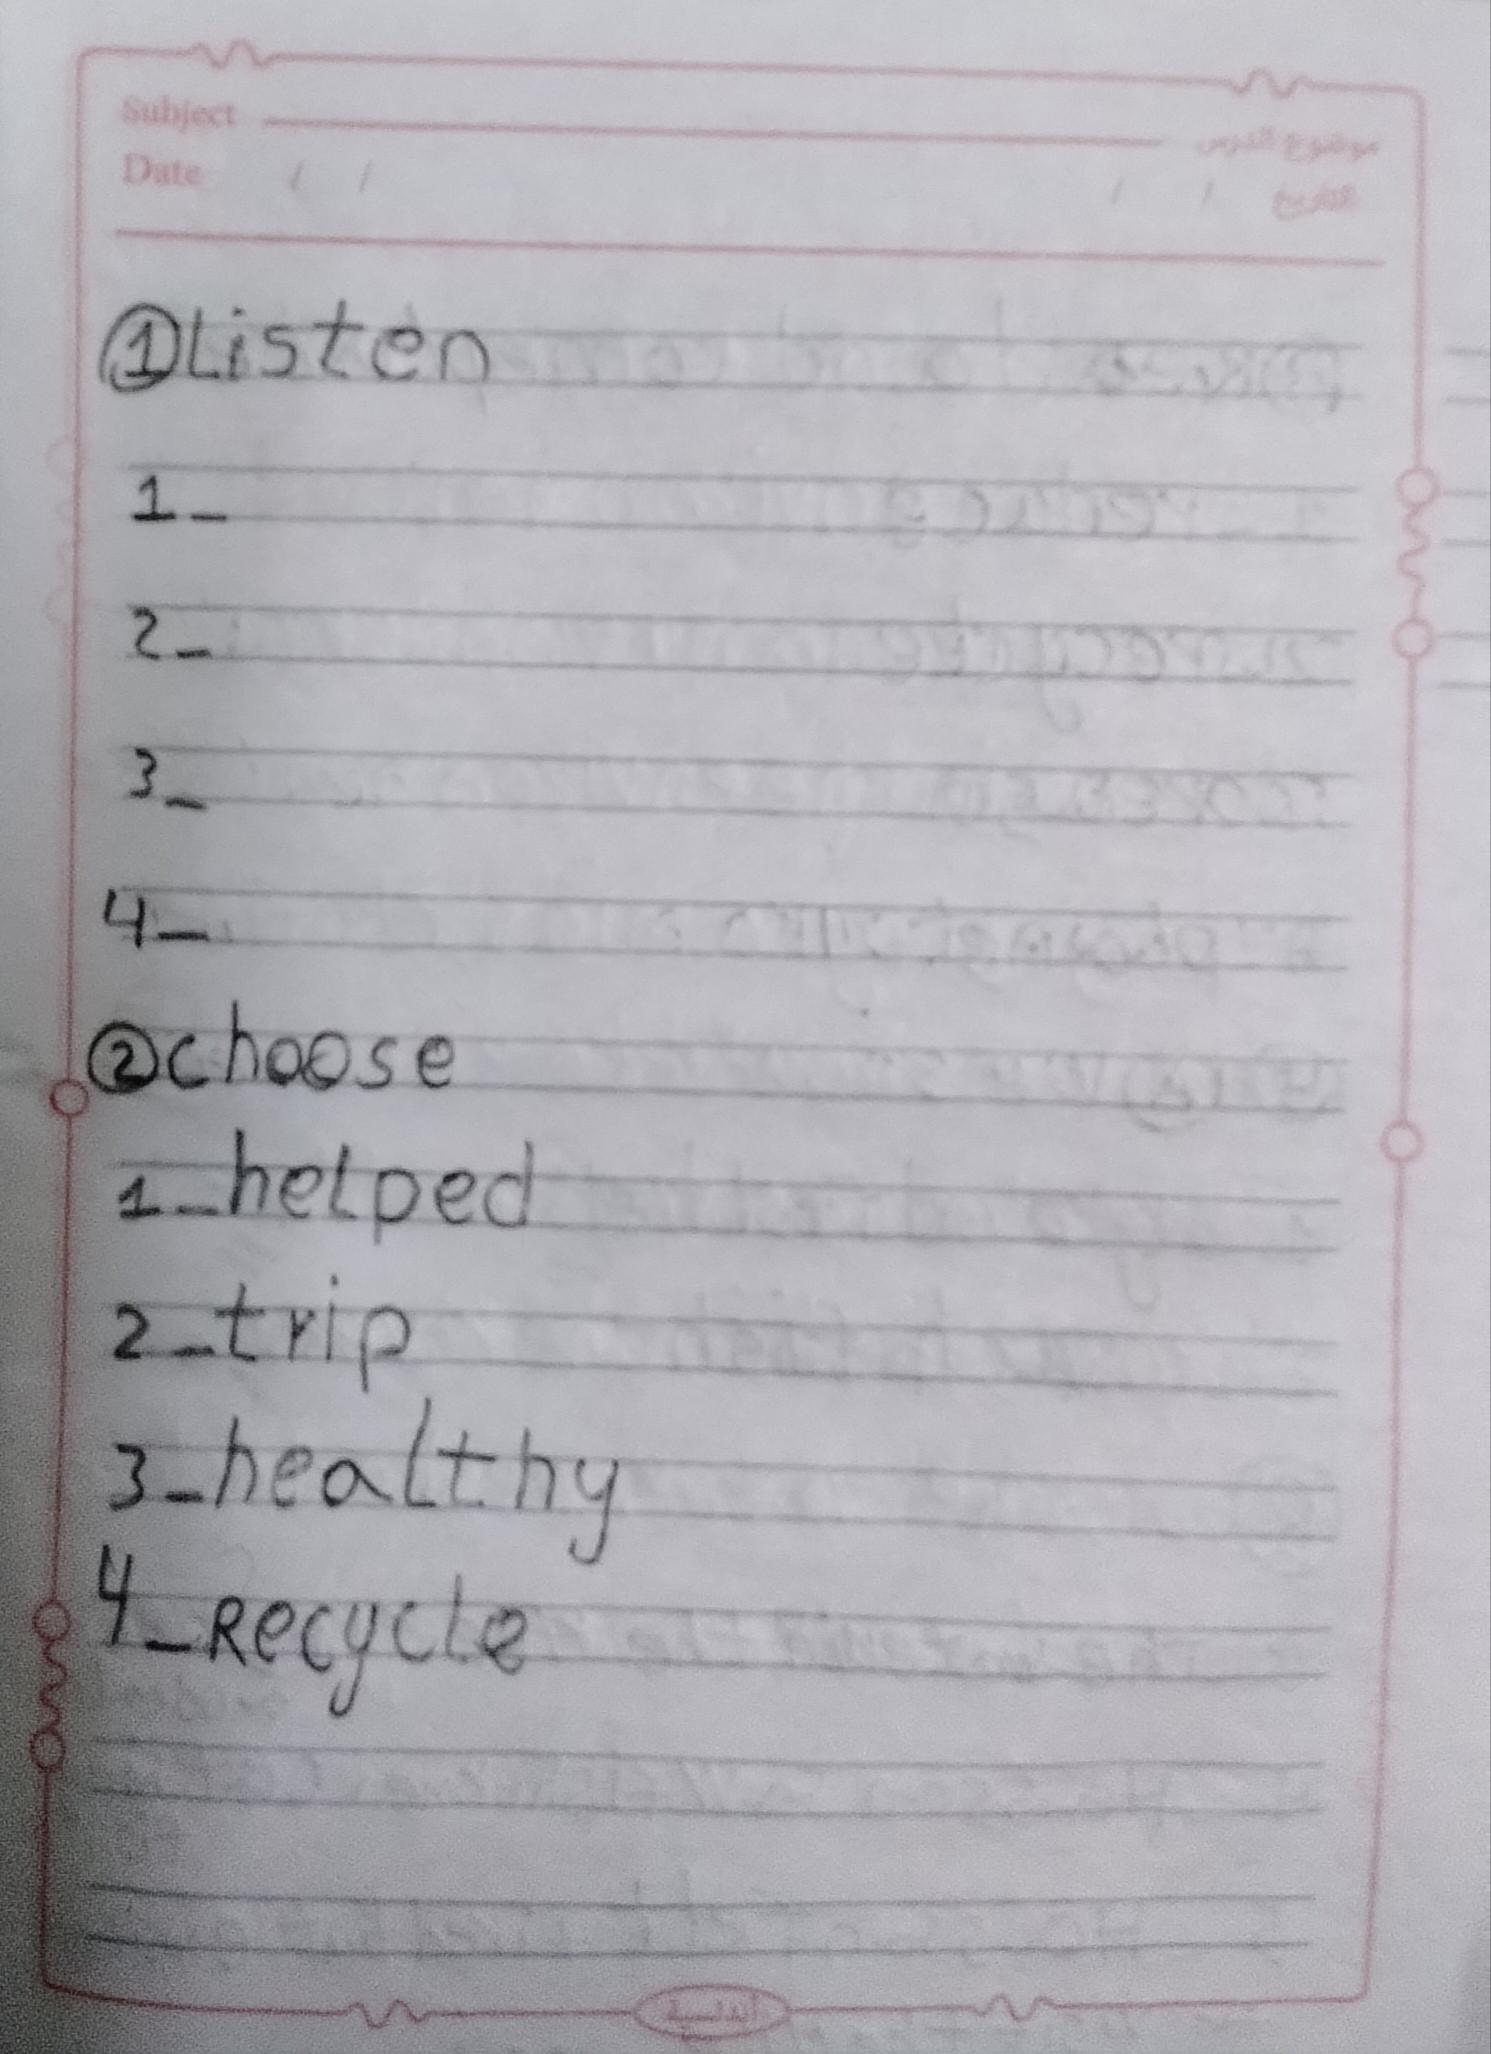 Subject موضوع الدرس
Date / / / / التاريخ
① Listen
1_
2_
3_
4_
② choose
1_helped
2_trip
3_healthy
4_Recycle